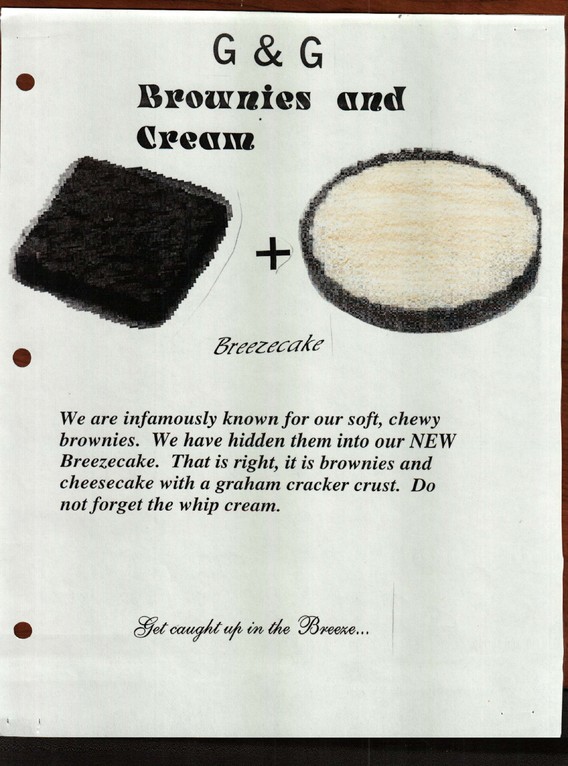 G & G
Brownies and
Cream
+
Breezecake
We are infamously known for our soft, chewy
brownies.  We have hidden them into our NEW
Breezecake.  That is right, it is brownies and
cheesecake with a graham cracker crust.  Do
not forget the whip cream.
Get caught up in the Breeze...